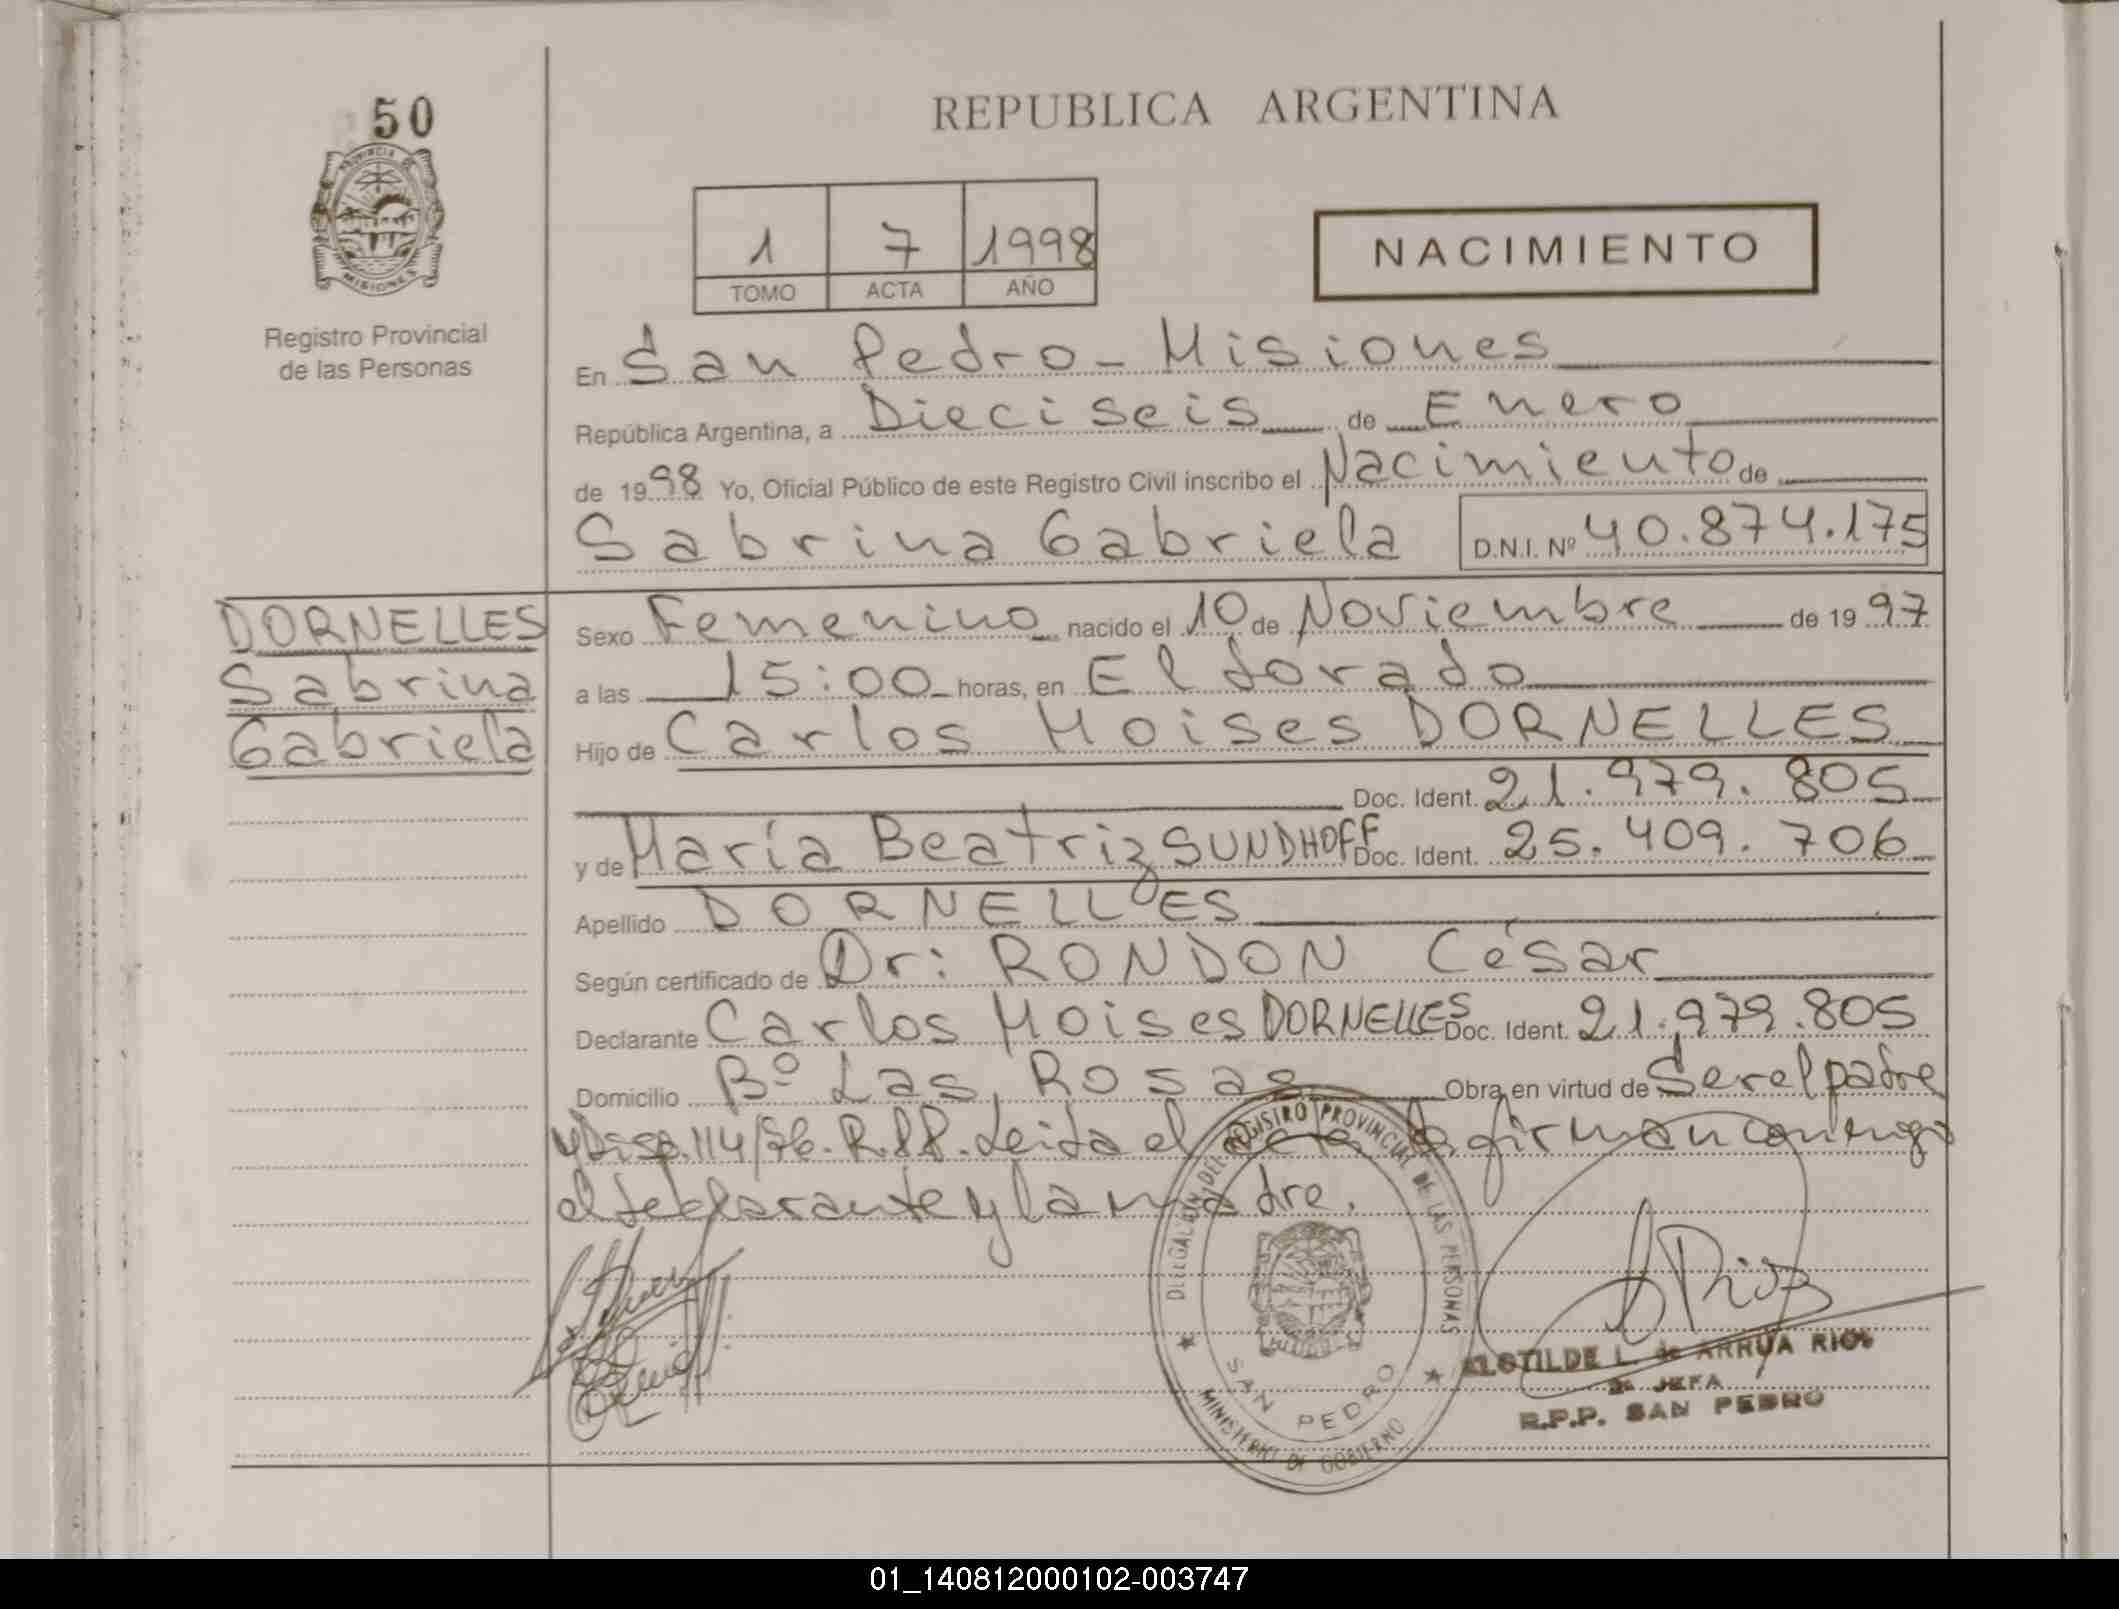 50
PROVINCIA DE
MISIONES
Registro Provincial
de las Personas
REPUBLICA ARGENTINA
1 7 1998
TOMO ACTA AÑO
NACIMIENTO
En San Pedro - Misiones
República Argentina, a Dieciseis de Enero
de 1998 Yo, Oficial Público de este Registro Civil inscribo el Nacimiento de
Sabrina Gabriela D.N.I. Nº 40.874.175
DORNELLES
Sabrina
Gabriela
Sexo Femenino nacido el 10 de Noviembre de 1997
a las 15:00 horas, en Eldorado
Hijo de Carlos Moises DORNELLES
Doc. Ident. 21.979.805
y de María Beatriz SUNDHOFF Doc. Ident. 25.409.706
Apellido DORNELLES
Según certificado de Dr: RONDON César
Declarante Carlos Moises DORNELLES Doc. Ident. 21.979.805
Domicilio Bº Las Rosas Obra en virtud de Ser el padre
y Disp. 114/96. R.P.P. Leida el acta la firman conmigo
el declarante y la madre.
DELEGACION DEL REGISTRO PROVINCIAL DE LAS PERSONAS
SAN PEDRO
MINISTERIO DE GOBIERNO
A Rios
CLOTILDE L. de ARRUA RIOS
JEFA
R.P.P. SAN PEDRO
01_140812000102-003747